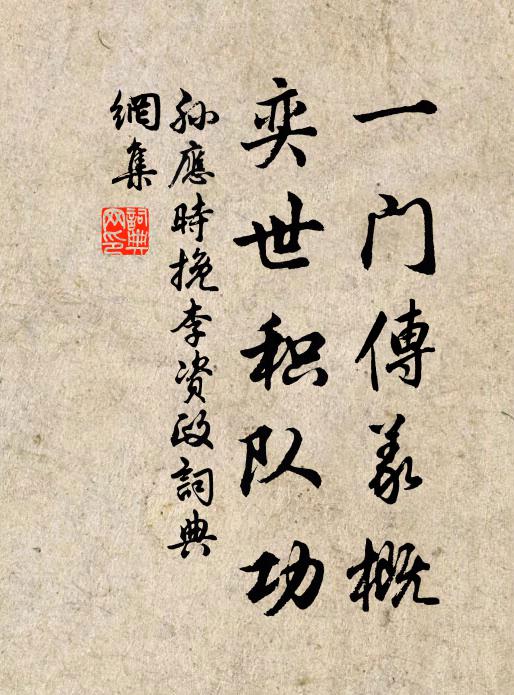 一门傳義概
奕世积队功
孙應時挽李资政詞典
網集
詞典
网印